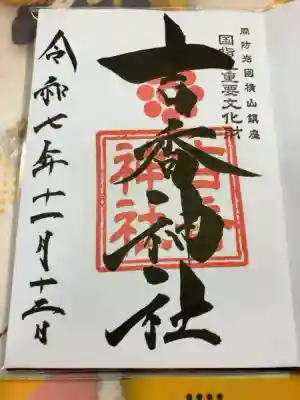 周防岩國横山鎮座
国指定重要文化財
吉香神社
吉香
神社
令和七年十一月十三日